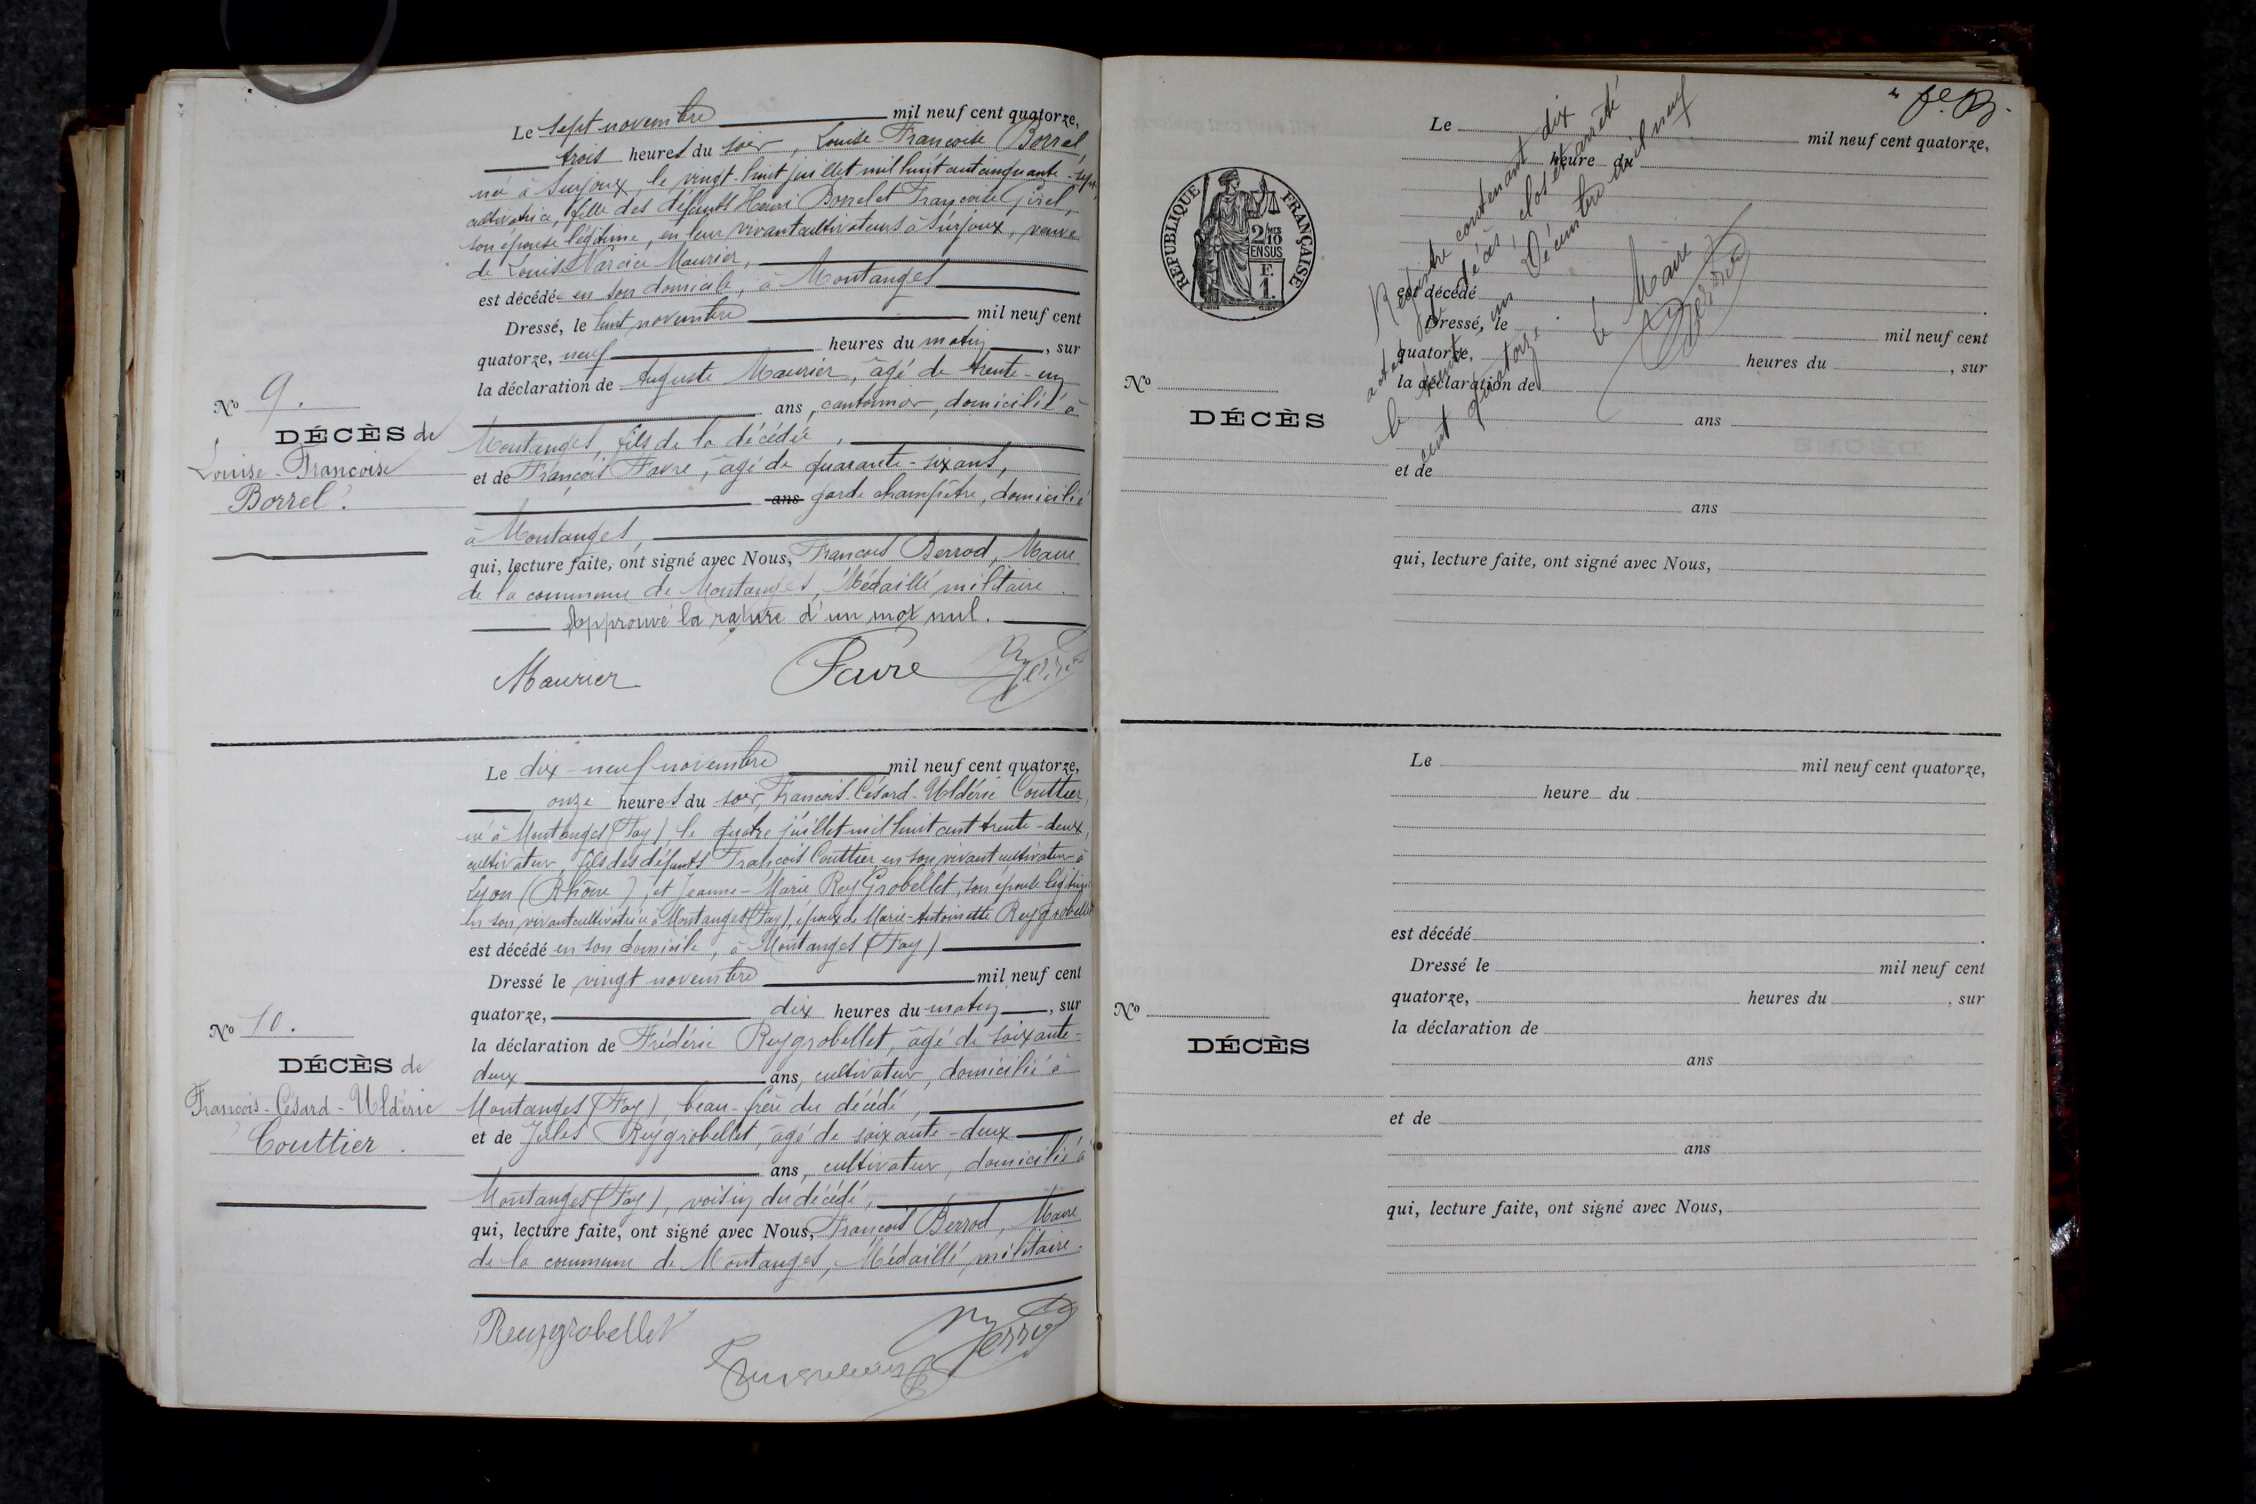 Le sept novembre mil neuf cent quatorze,
trois heures du soir, Louise-Françoise Borrel,
née à Surjoux, le vingt-huit juillet mil huit cent cinquante-sept,
cultivatrice, fille des défunts Henri Borrel et Françoise Girel,
son épouse légitime, en leur vivant cultivateurs à Surjoux, veuve
de Louis Narcice Maurier,
est décédée en son domicile, à Montanges
Dressé, le huit novembre mil neuf cent
quatorze, neuf heures du matin, sur
la déclaration de Auguste Maurier, âgé de trente-un
ans, cantonnier, domicilié à
Montanges, fils de la décédée,
et de François Favre, âgé de quarante-six ans,
ans garde champêtre, domicilié
à Montanges,
qui, lecture faite, ont signé avec Nous, François Berrod, Maire
de la commune de Montanges, Médaillé militaire.
Approuvé la rature d'un mot nul.
Maurier Favre Berrod
No 9.
DÉCÈS de
Louise-Françoise
Borrel.
Le dix-neuf novembre mil neuf cent quatorze,
onze heures du soir, François-Césard-Uldéric Couttier,
né à Montanges (Fay) le quatre juillet mil huit cent trente-deux,
cultivateur, fils des défunts François Couttier en son vivant cultivateur à
Lyon (Rhône), et Jeanne-Marie Rey Grobellet, son épouse légitime
en son vivant cultivatrice à Montanges (Fay), époux de Marie-Antoinette Reygrobellet
est décédé en son domicile, à Montanges (Fay)
Dressé le vingt novembre mil neuf cent
quatorze, dix heures du matin, sur
la déclaration de Frédéric Reygrobellet, âgé de soixante-
deux ans, cultivateur, domicilié à
Montanges (Fay), beau-frère du décédé,
et de Jules Reygrobellet, âgé de soixante-deux
ans, cultivateur, domicilié à
Montanges (Fay), voisin du décédé,
qui, lecture faite, ont signé avec Nous, François Berrod, Maire
de la commune de Montanges, Médaillé militaire.
Reygrobellet
Berrod
No 10.
DÉCÈS de
François-Césard-Uldéric
Couttier.
Le mil neuf cent quatorze,
heure du
est décédé
Dressé, le mil neuf cent
quatorze, heures du , sur
la déclaration de
ans
et de
ans
qui, lecture faite, ont signé avec Nous,
Registre contenant dix
actes de décès, clos et arrêté
le trente un Décembre mil neuf
cent quatorze.
Le Maire
Berrod
RÉPUBLIQUE FRANÇAISE
2/10 MES
EN SUS
F.
1.
No
DÉCÈS
Le mil neuf cent quatorze,
heure du
est décédé
Dressé le mil neuf cent
quatorze, heures du , sur
la déclaration de
ans
et de
ans
qui, lecture faite, ont signé avec Nous,
No
DÉCÈS